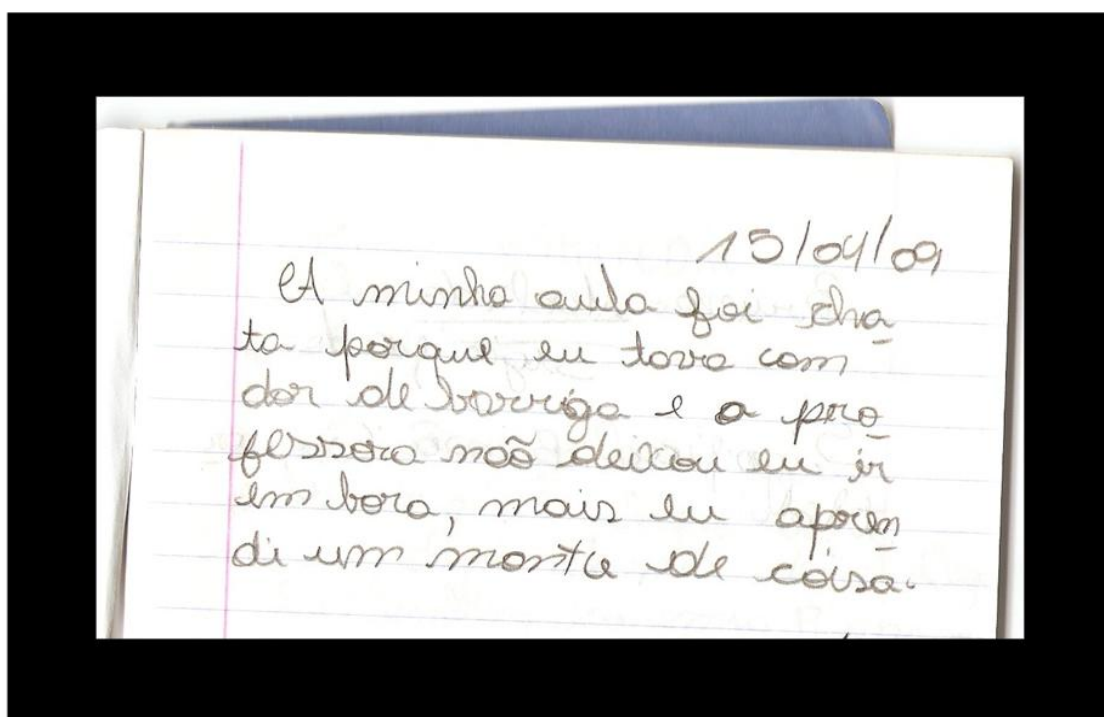 15/04/09
A minha aula foi cha
ta porque eu tava com
dor de barriga e a pro
fessora não deixou eu ir
em bora, mais eu apren
di um monte de coisa.